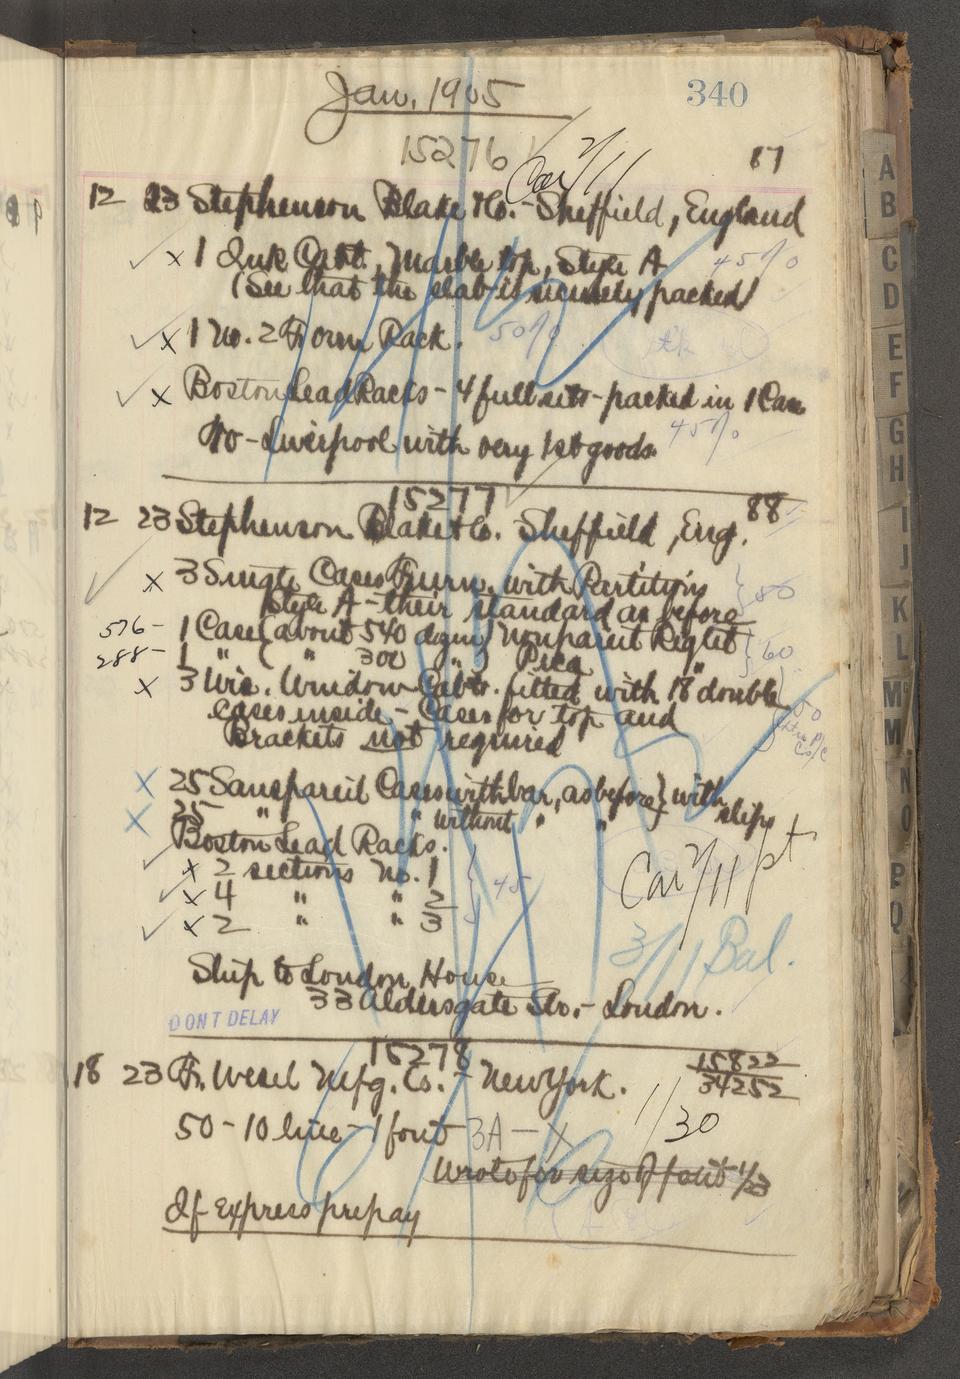 Jan. 1905
340
15276
Car 2/11
87
12 23 Stephenson Blake & Co. - Sheffield, England
✓ x 1 Ink Cabt., Marble top, Style A 45%
(See that the slab is securely packed)
✓ x 1 No. 2 Form Rack. 50%
✓ x Boston Lead Racks - 4 full sets - packed in 1 Case
To - Liverpool with very 1st goods. 45%
15277
88
12 23 Stephenson Blake & Co. Sheffield, Eng.
x 3 Single Cases Furn. with Partitions
Style A - their standard as before } 50
576 - 1 Case (about 540 dozen) Nonpareil Reglet
288 - 1 " ( " 300 " ) Pica " } 60
x 3 Wis. Window Cabts. fitted with 18 double
cases inside - Cases for top and
Brackets not required
x 25 Sanspareil Cases with bar, as before } with
x 25 " " without " " slips
Boston Lead Racks.
✓ x 2 sections No. 1
✓ x 4 " " 2 } 45
✓ x 2 " " 3
Car 2/11 pt
3/11 Bal.
Ship to London House
33 Aldersgate St. - London.
DONT DELAY
15278
15822
34252
18 23 F. Wesel Mfg. Co. - New York.
50 - 10 line - 1 font 3A - X
1/30
Wrote for size of font 1/23
If express prepay
A
B
C
D
E
F
G
H
I
J
K
L
Mc
M
N
O
P
Q